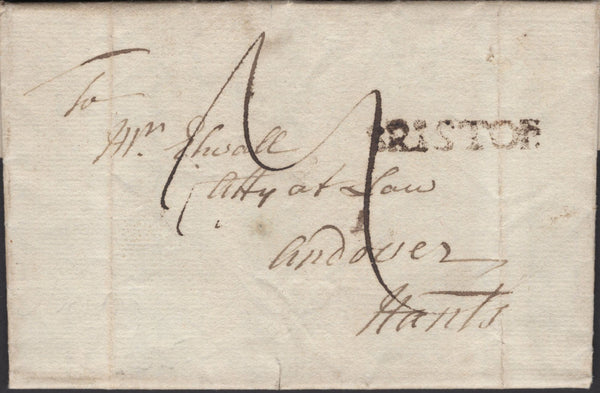 To
BRISTOL
Mr. Elwall
Atty at Law
Andover
Hants